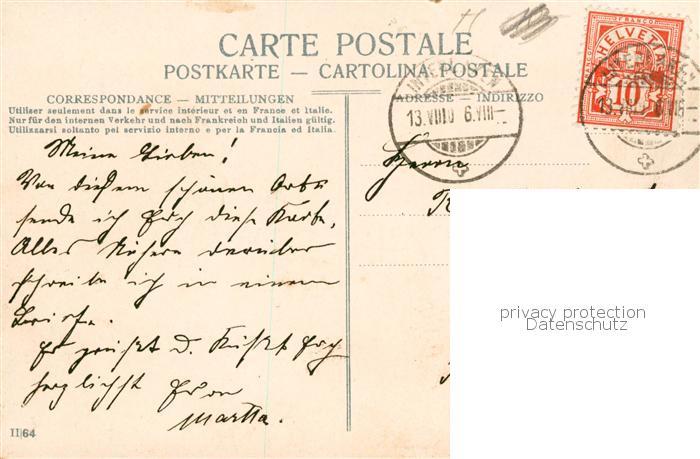 CARTE POSTALE
POSTKARTE — CARTOLINA POSTALE
CORRESPONDANCE — MITTEILUNGEN
Utiliser seulement dans le service intérieur et en France et Italie.
Nur für den internen Verkehr und nach Frankreich und Italien gültig.
Utilizzarsi soltanto pel servizio interno e per la Francia ed Italia.
ADRESSE — INDIRIZZO
FRANCO
HELVETIA
10
13.VIII10 6.VIII—
Meine Lieben!
Von diesem schönen Orte
sende ich Euch diese Karte,
Alles Nähere darüber
schreibe ich in einem
Briefe.
Es grüßt u. küßt Euch
herzlichst Eure
Martha.
Herrn
II|64
privacy protection
Datenschutz